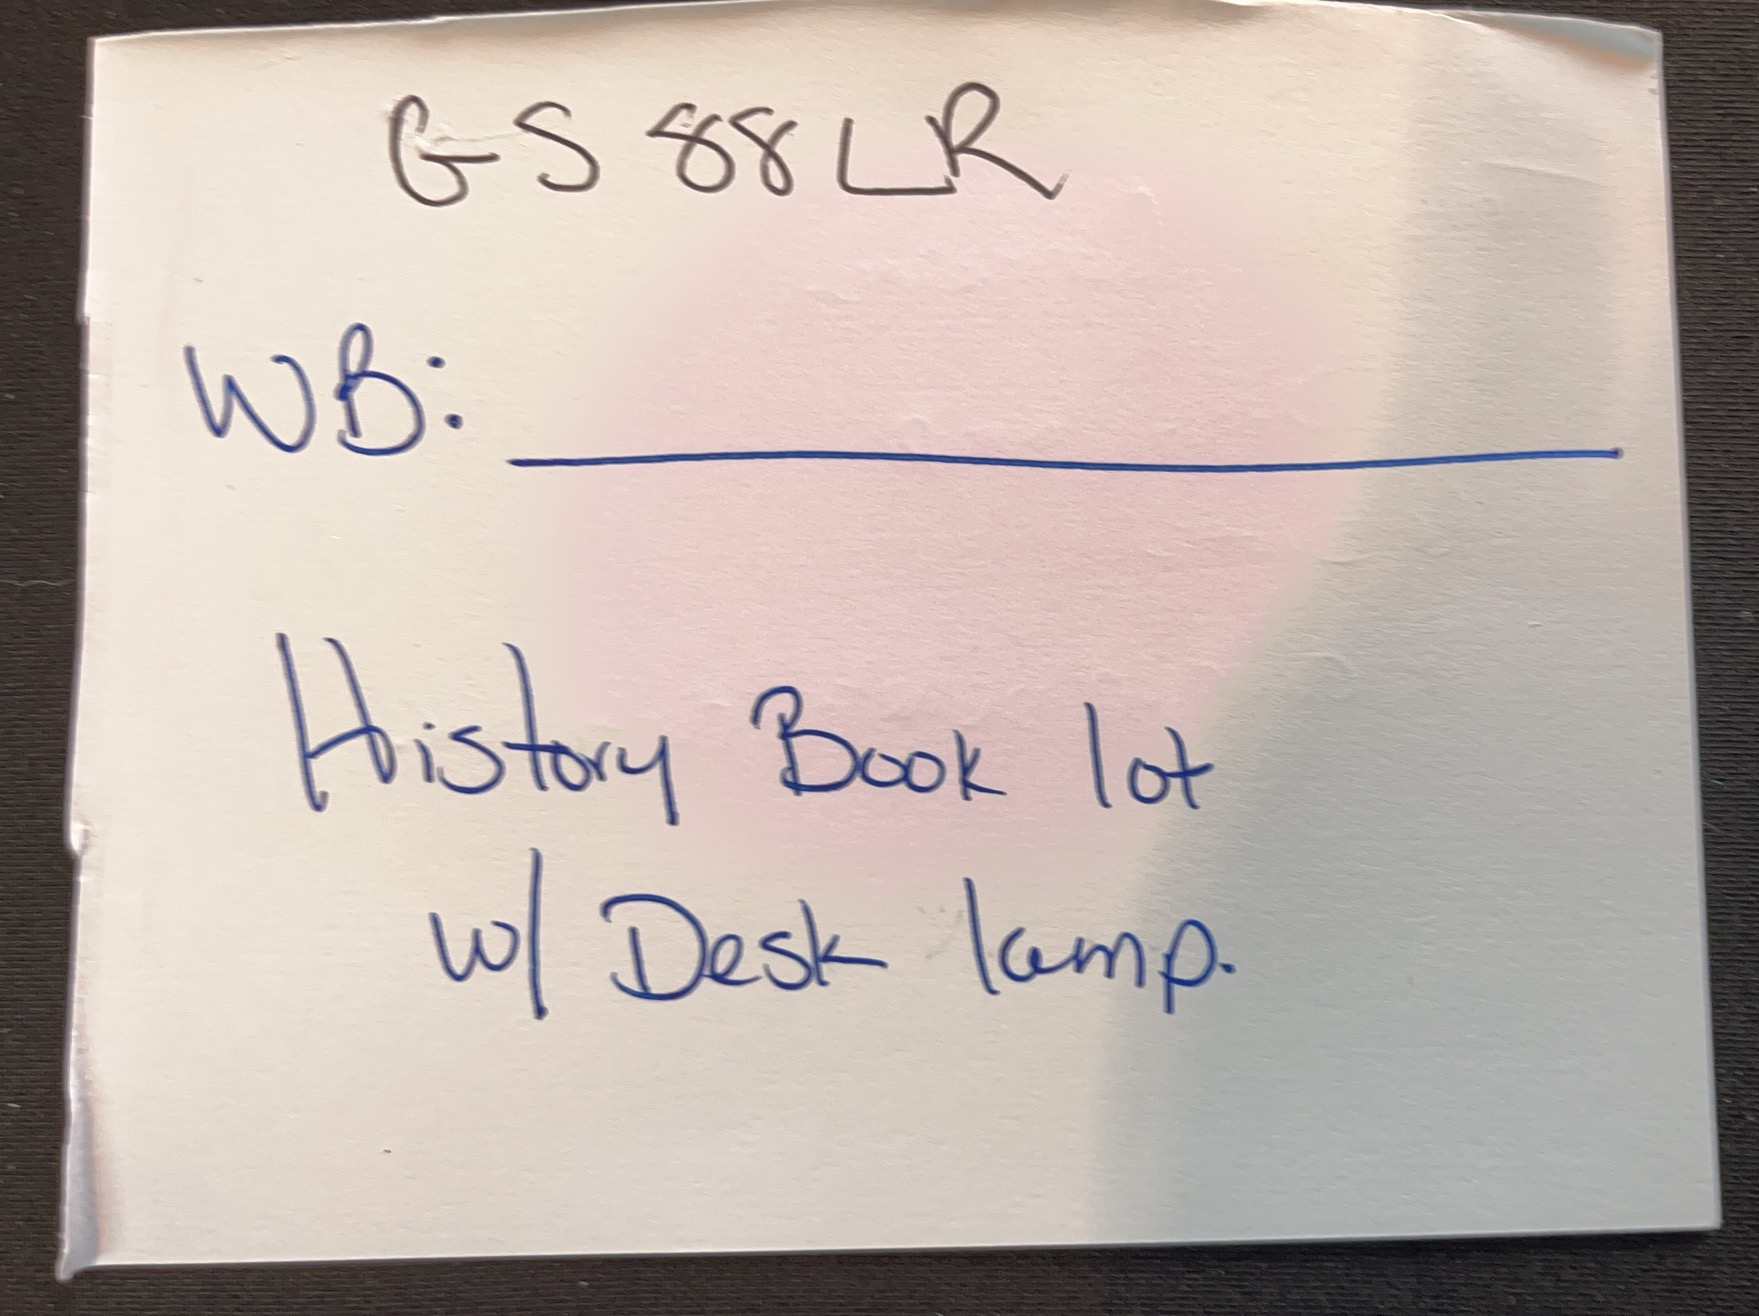 GS 88 LR
WB:
History Book lot
w/ Desk lamp.